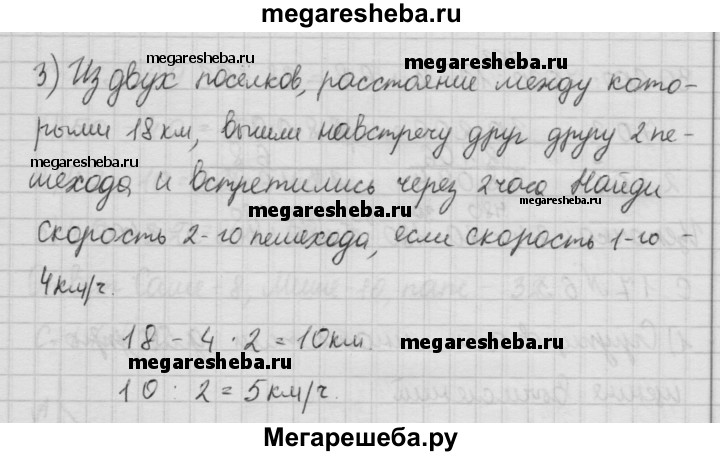 megaresheba.ru
megaresheba.ru
megaresheba.ru
3) Из двух посёлков, расстояние между кото-
рыми 18 км, вышли навстречу друг другу 2 пе-
megaresheba.ru
шехода и встретились через 2 часа Найди
megaresheba.ru
megaresheba.ru
скорость 2-го пешехода, если скорость 1-го -
4 км/ч.
18 - 4 · 2 = 10 км.
megaresheba.ru
megaresheba.ru
10 : 2 = 5 км/ч.
Мегарешеба.ру